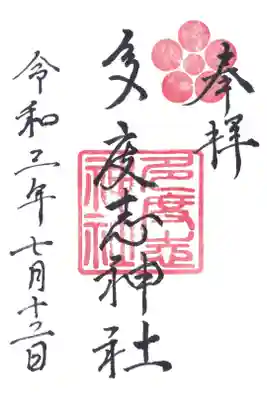 奉拝
多度志神社
多度志神社
令和三年七月十三日